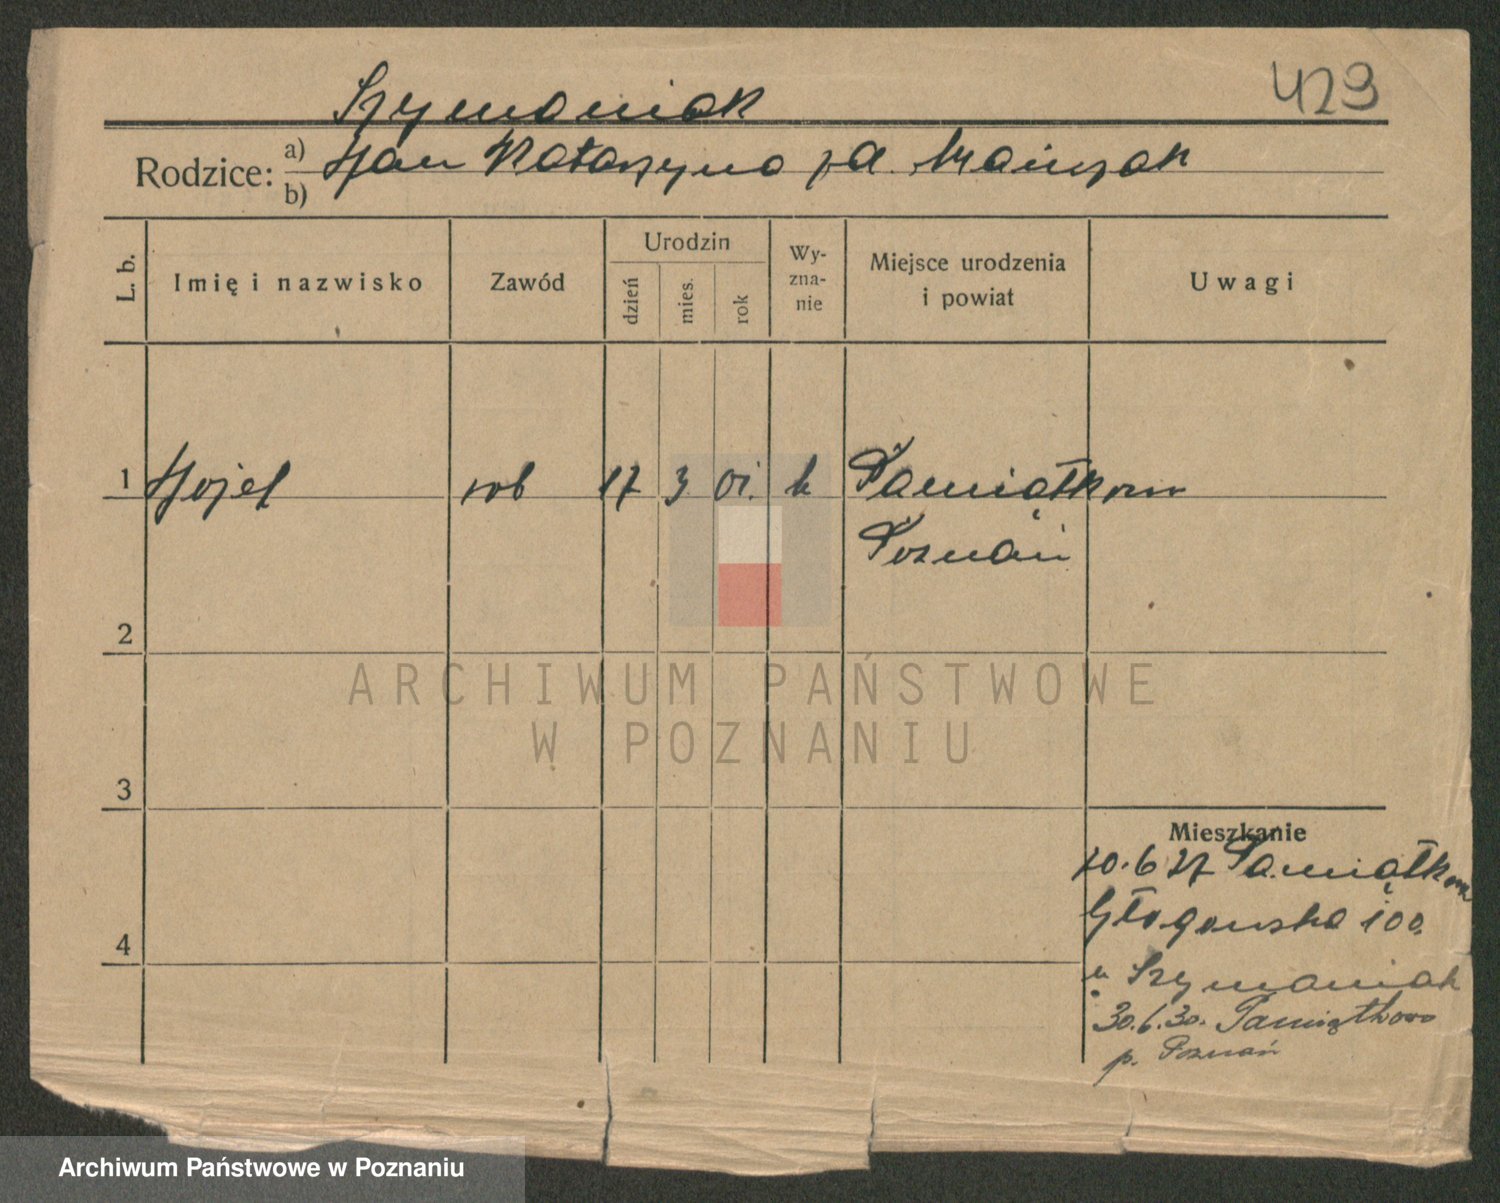 429
Szymaniak
Rodzice: a) Jan Katarzyna z d.
b)
L. b.
Imię i nazwisko
Zawód
Urodzin
dzień
mies.
rok
Wy-
zna-
nie
Miejsce urodzenia
i powiat
Uwagi
1 Józef rob 17 3 01. k Pamiątkowo
Poznań
2
3
4
Mieszkanie
10.6 27 Pamiątkowo
Głogowska 100.
u Szymaniak
30.6.30. Pamiątkowo
p. Poznań
ARCHIWUM PAŃSTWOWE
W POZNANIU
Archiwum Państwowe w Poznaniu